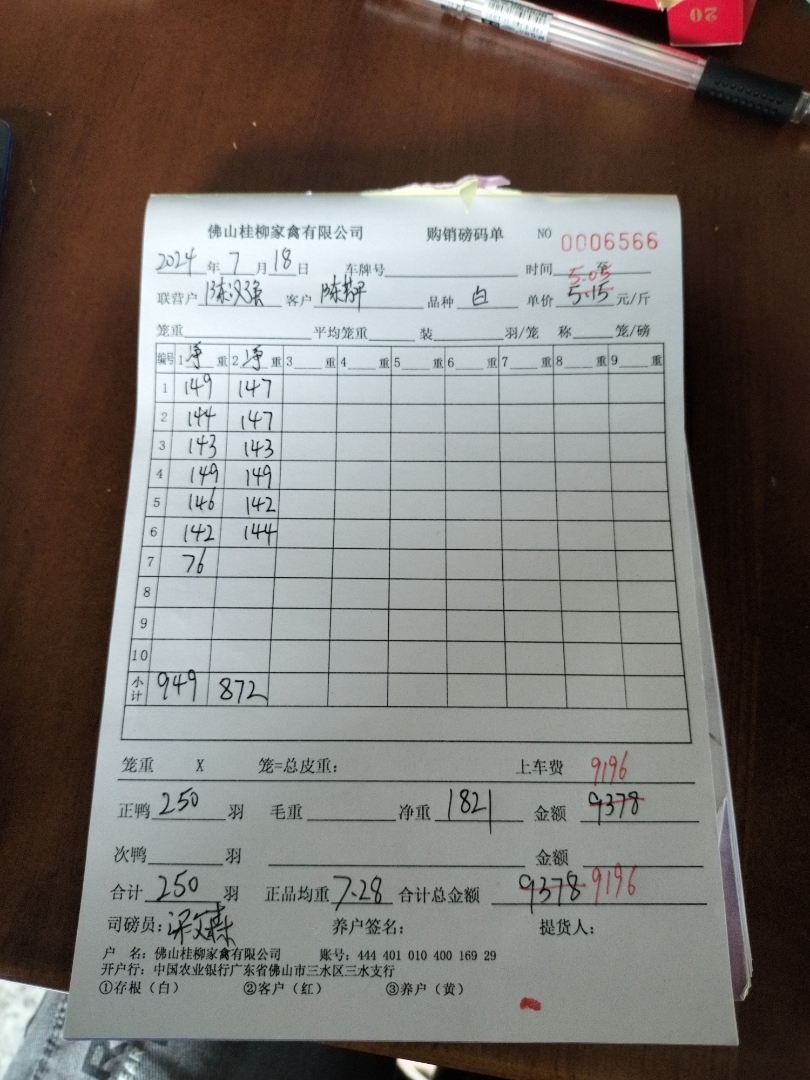 20
佛山桂柳家禽有限公司 购销磅码单 NO 0006566
2024 年 7 月 18 日 车牌号 时间 至
5.05
联营户 陈汉强 客户 陈静平 品种 白 单价 5.15 元/斤
笼重 平均笼重 装 羽/笼 称 笼/磅
编号 1 净 重 2 净 重 3 重 4 重 5 重 6 重 7 重 8 重 9 重
1 149 147
2 144 147
3 143 143
4 149 149
5 146 142
6 142 144
7 76
8
9
10
小计 949 872
笼重 X 笼=总皮重: 上车费 9196
正鸭 250 羽 毛重 净重 1821 金额 9378
次鸭 羽 金额
合计 250 羽 正品均重 7.28 合计总金额 9378 9196
司磅员: 养户签名: 提货人:
户 名: 佛山桂柳家禽有限公司 账号: 444 401 010 400 169 29
开户行: 中国农业银行广东省佛山市三水区三水支行
①存根（白） ②客户（红） ③养户（黄）